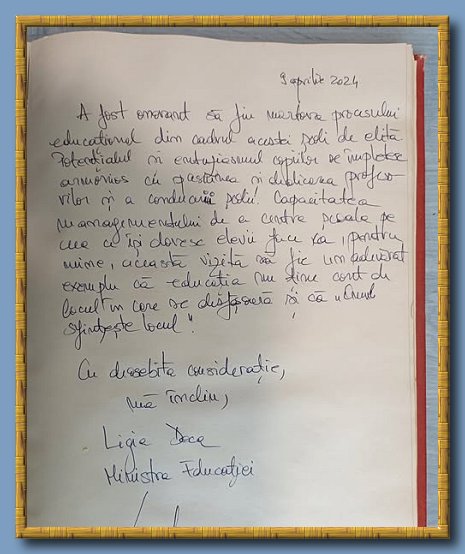 9 aprilie 2024
A fost onorant să fiu martora procesului
educațional din cadrul acestei școli de elită.
Potențialul și entuziasmul copiilor se împletesc
armonios cu pasiunea și dedicarea profeso-
rilor și a conducerii școlii. Capacitatea
managementului de a centra școala pe
ceea ce își doresc elevii face ca, pentru
mine, această vizită să fie un adevărat
exemplu că educația nu ține cont de
locul în care se desfășoară și că "Omul
sfințește locul".
Cu deosebita considerație,
mă înclin,
Ligia Deca
Ministra Educației